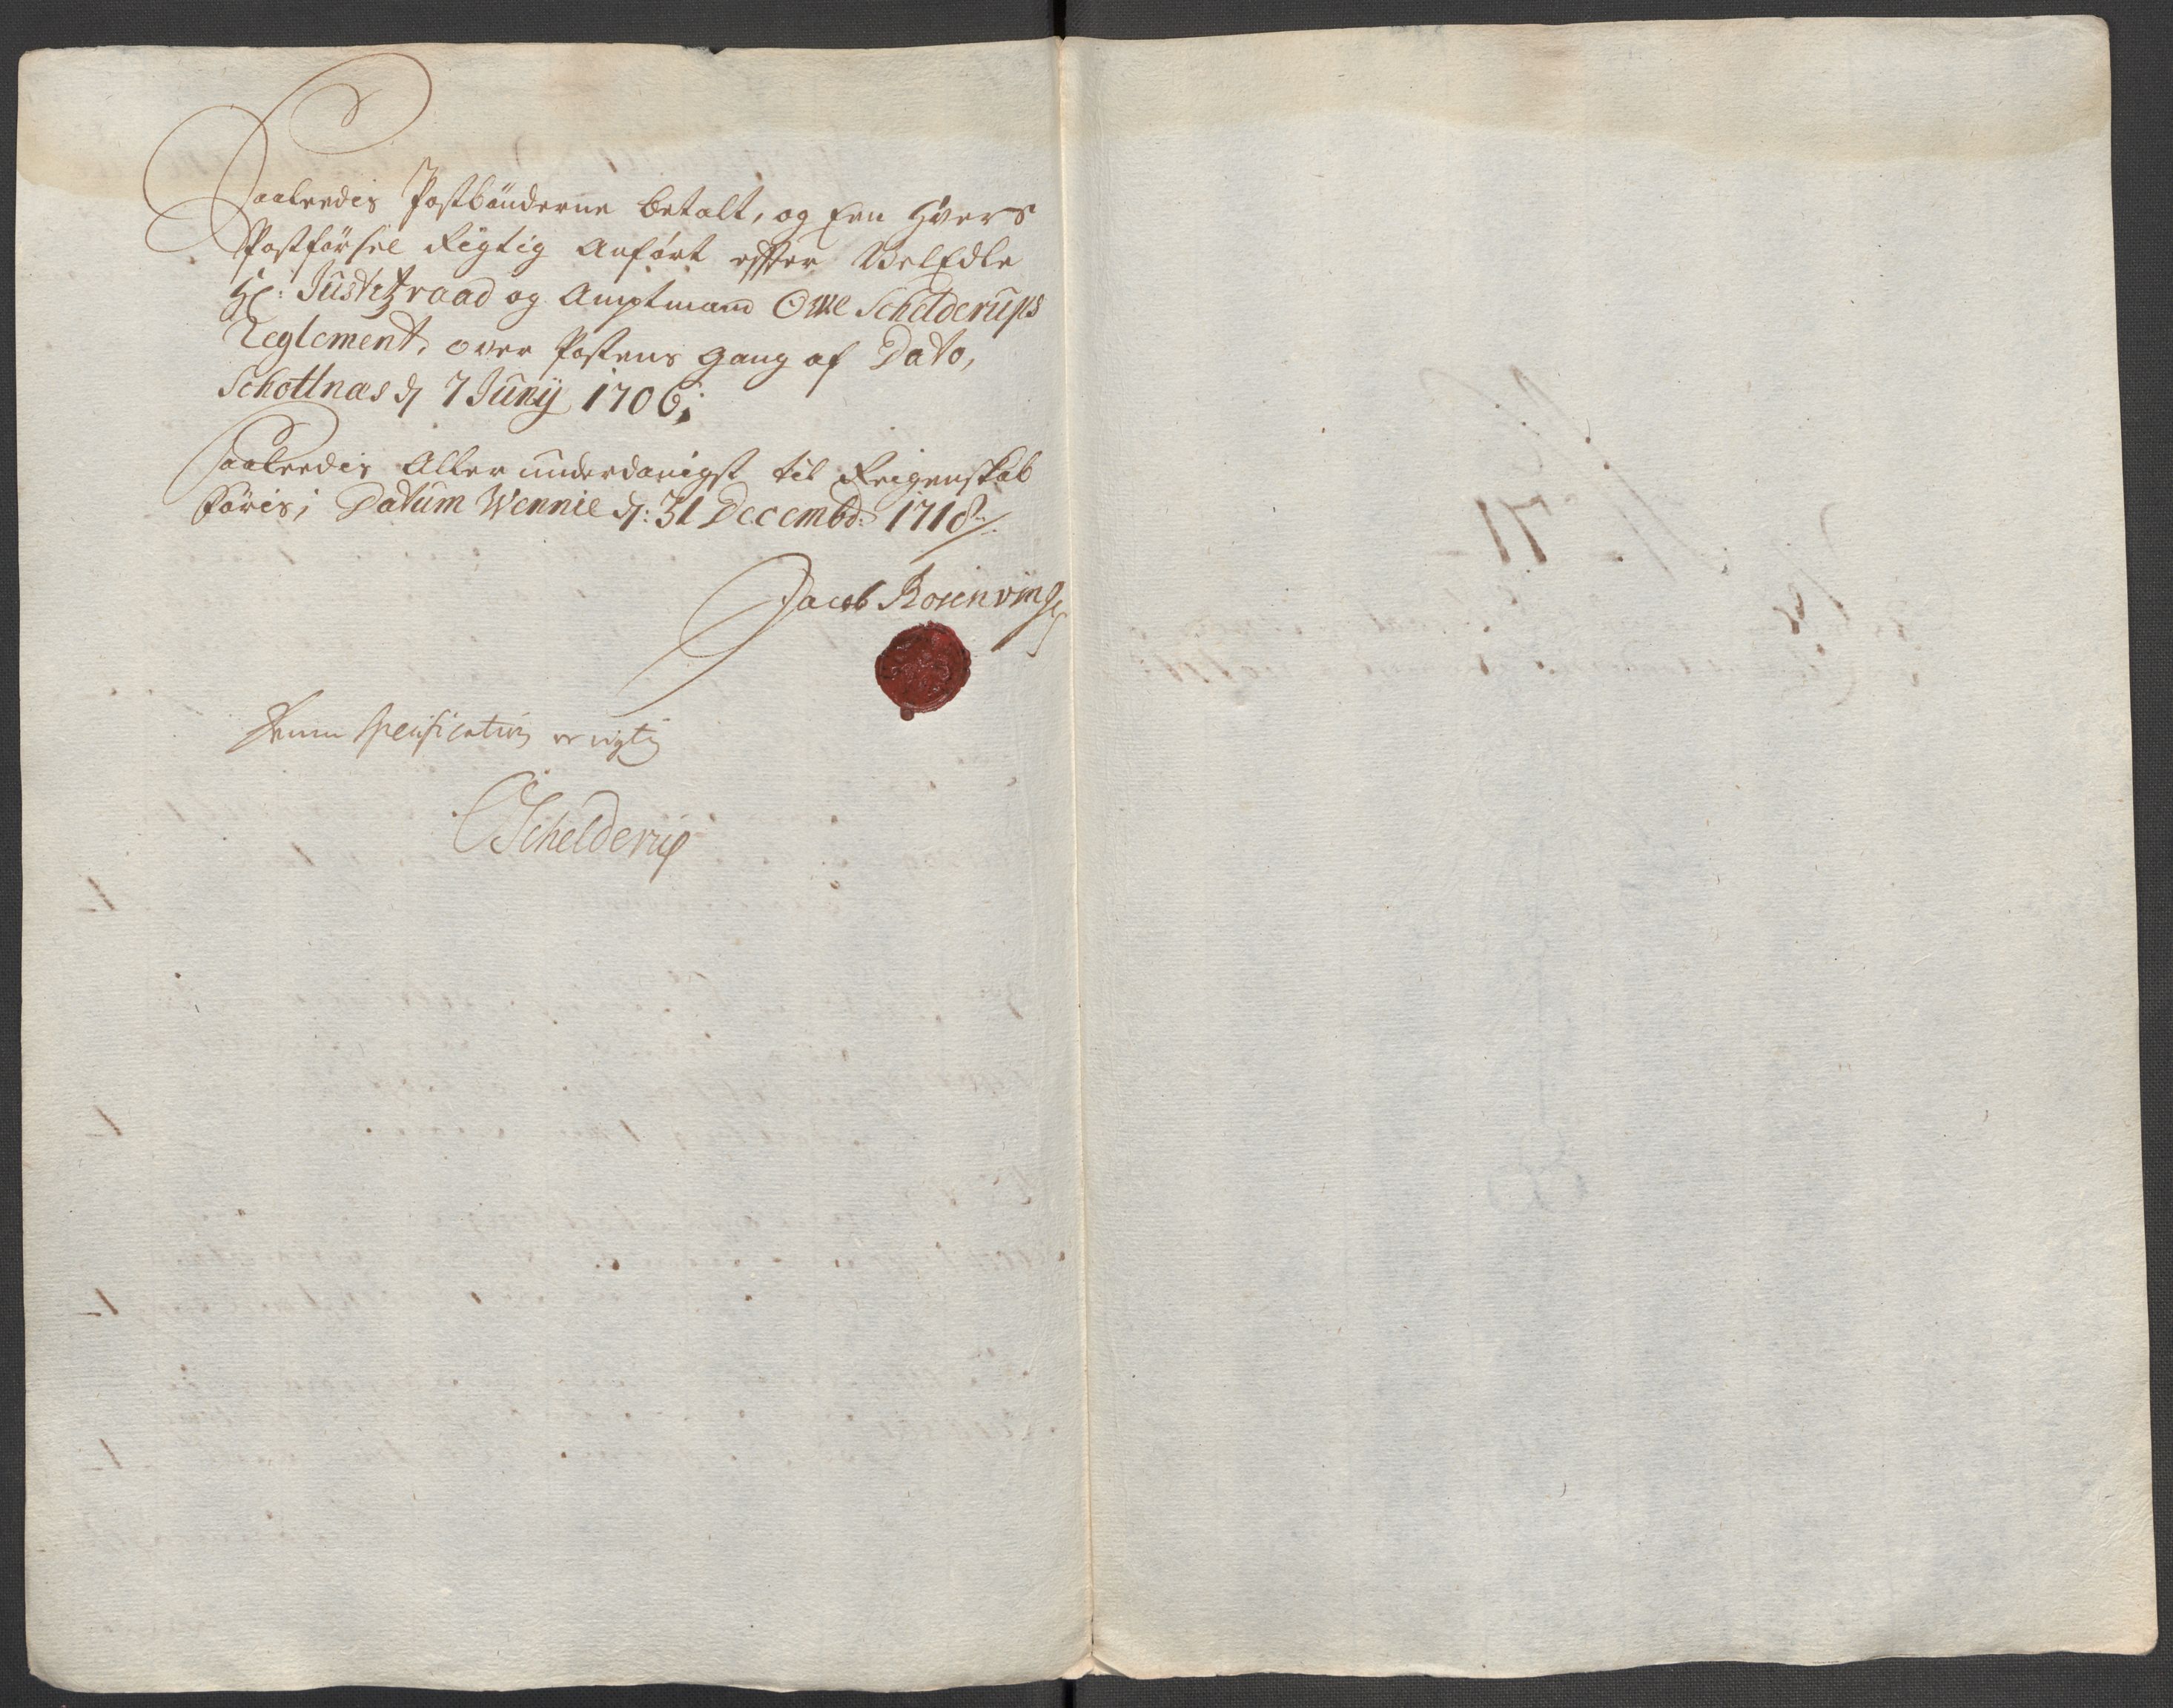 Saaleedis Postbønderne betalt, og Een Hvers
Postførsel Rigtig Anført effter VelEdle
Hr: Justitzraad og Amptmand Owe Schelderups
Reglement, over Postens gang af Dato,
Schottnæs d 7 Junij 1706;
Saaleedis Aller underdanigst til Reigenskab
føris; Datum Wennie d: 31 Decembr: 1718
Jacob Rosenvinge
Denne Specification er rigtig
OSchelderup